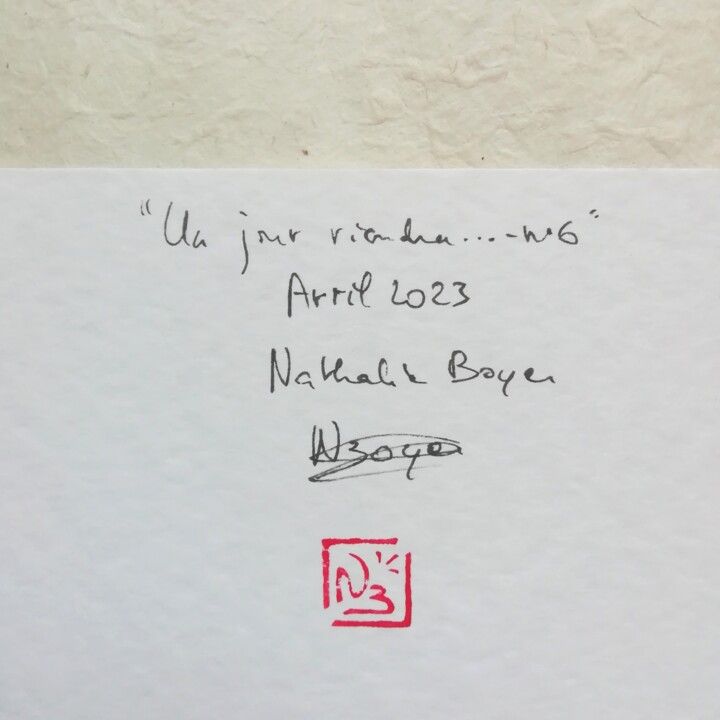 "Un jour viendra...-n°6"
Avril 2023
Nathalie Boyer
NBoyer
NB